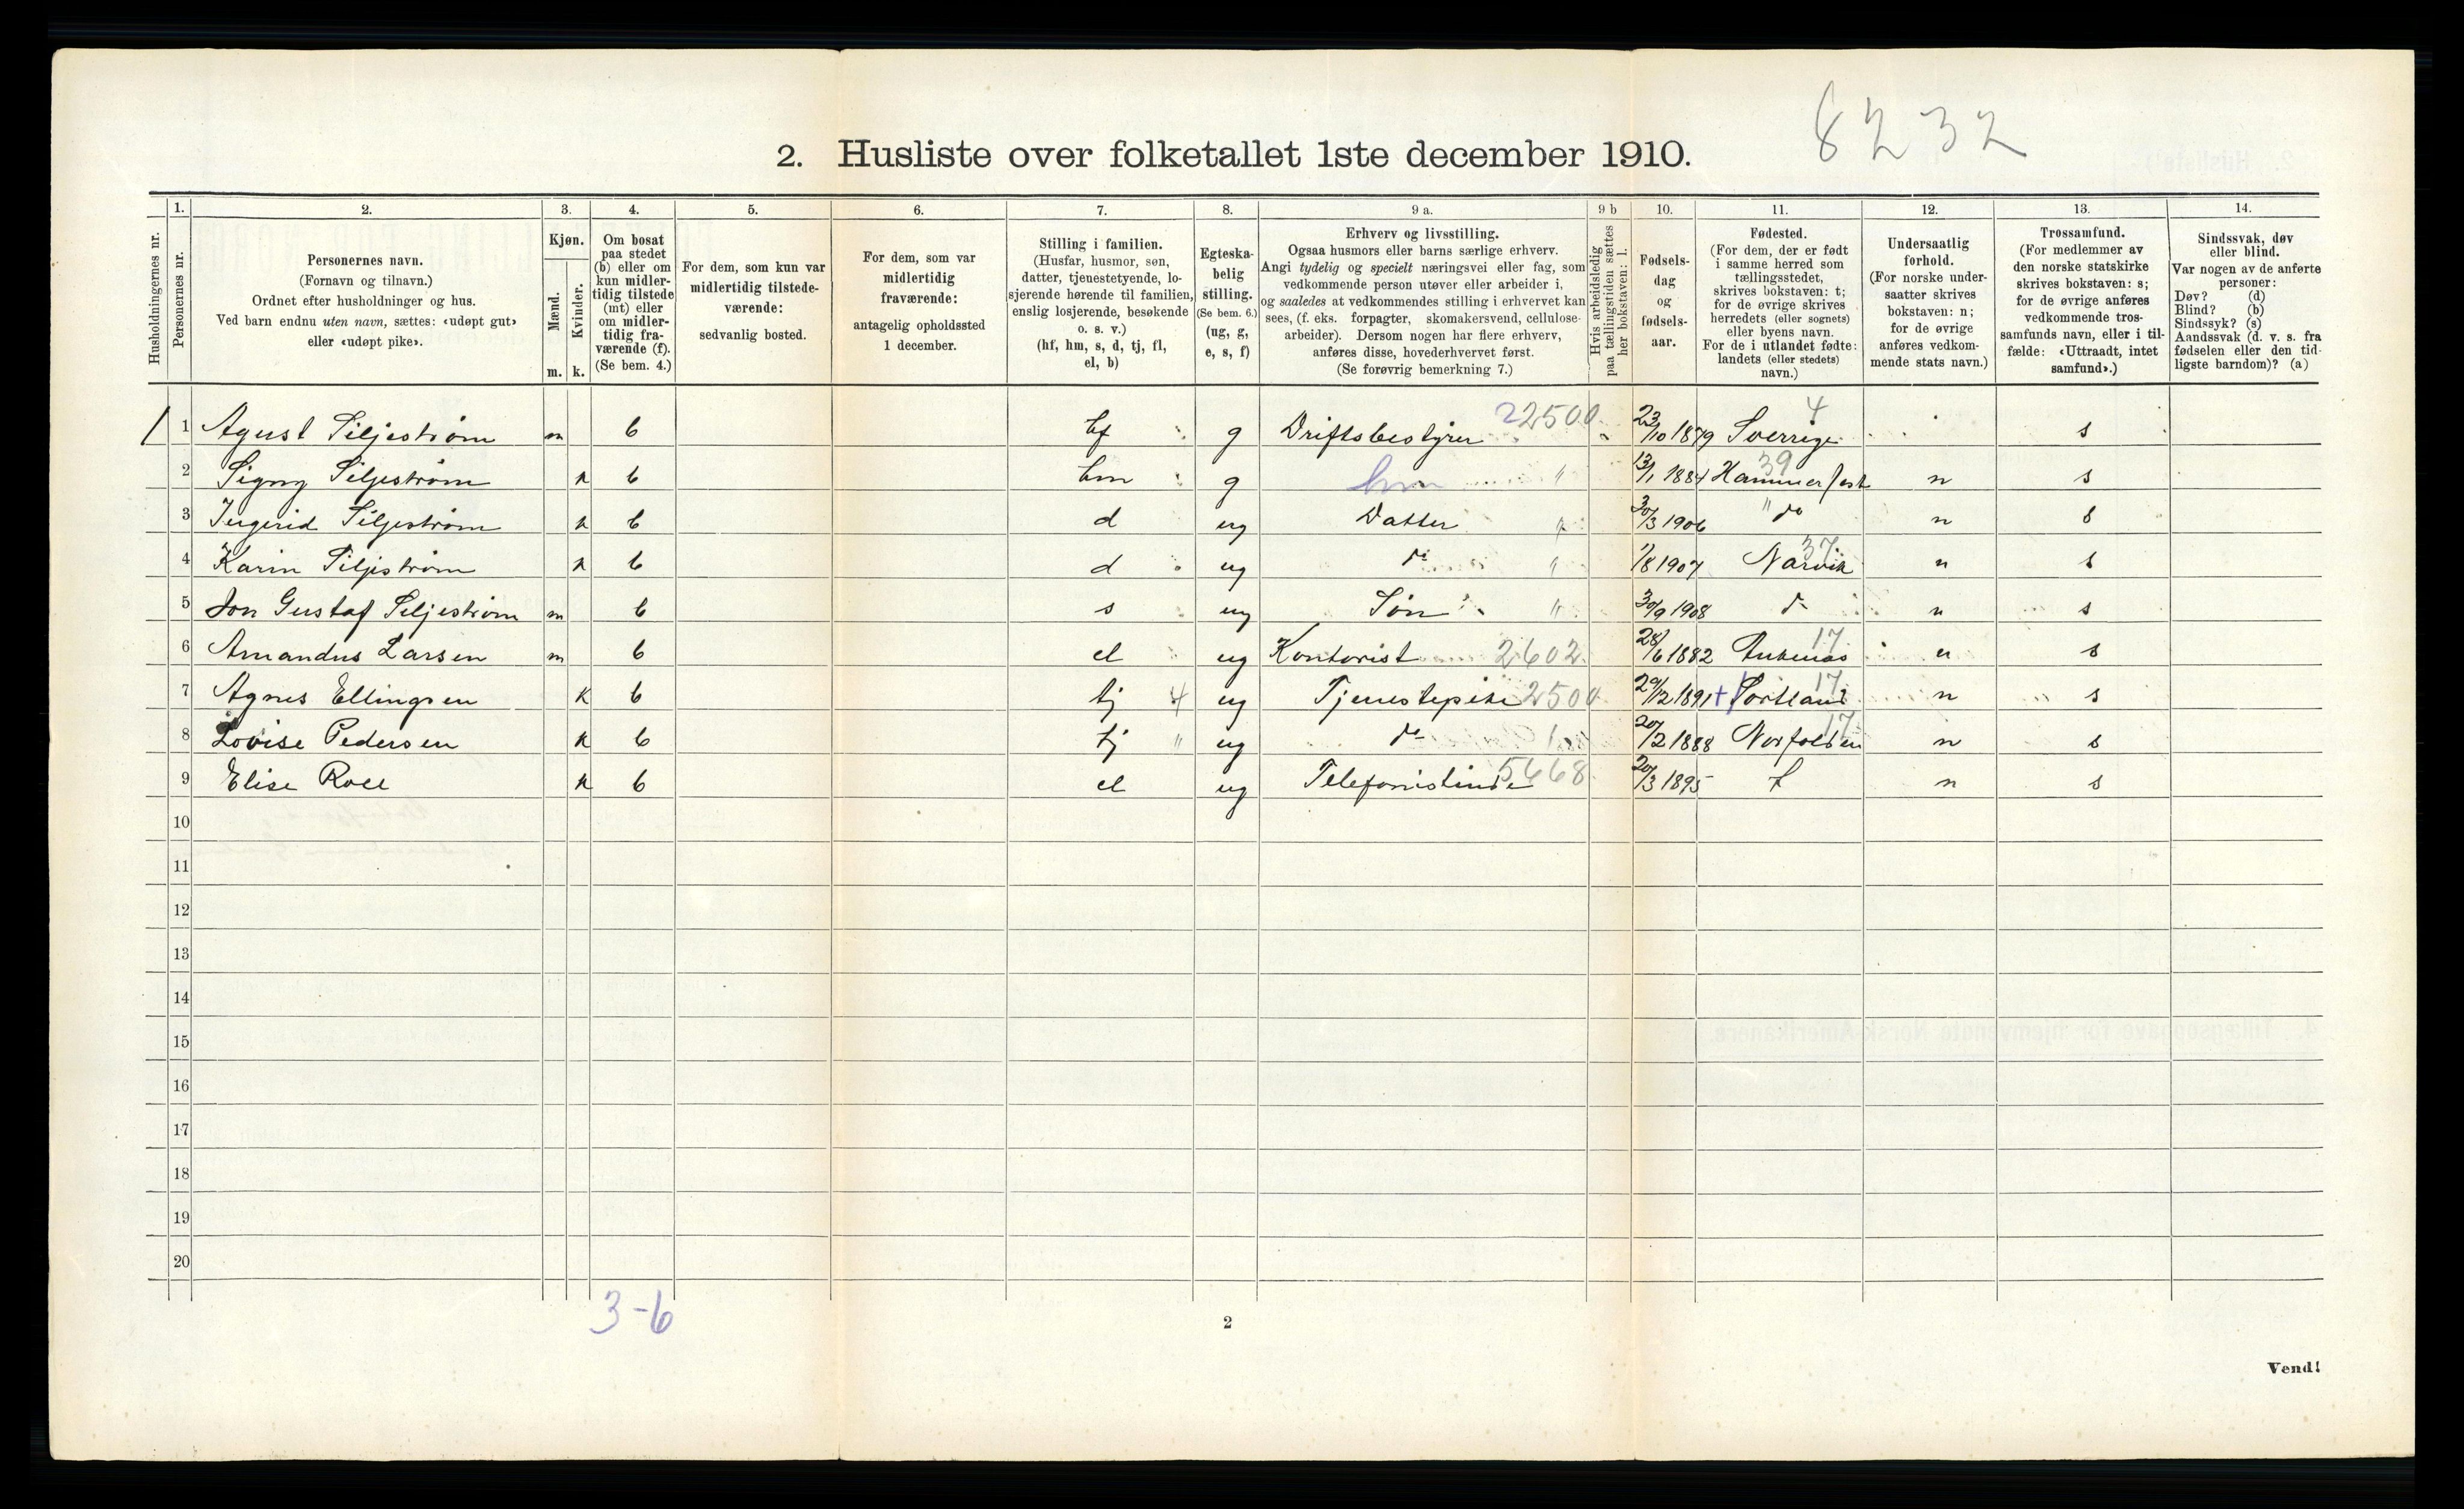 8232
2. Husliste over folketallet 1ste december 1910.
Husholdningernes nr.
1. Personernes nr.
2. Personernes navn. (Fornavn og tilnavn.) Ordnet efter husholdninger og hus. Ved barn endnu uten navn, sættes: «udøpt gut» eller «udøpt pike».
3. Kjøn. Mænd. m. Kvinder. k.
4. Om bosat paa stedet (b) eller om kun midlertidig tilstede (mt) eller om midlertidig fraværende (f). (Se bem. 4.)
5. For dem, som kun var midlertidig tilstedeværende: sedvanlig bosted.
6. For dem, som var midlertidig fraværende: antagelig opholdssted 1 december.
7. Stilling i familien. (Husfar, husmor, søn, datter, tjenestetyende, losjerende hørende til familien, enslig losjerende, besøkende o. s. v.) (hf, hm, s, d, tj, fl, el, b)
8. Egteskabelig stilling. (Se bem. 6.) (ug, g, e, s, f)
9 a. Erhverv og livsstilling. Ogsaa husmors eller barns særlige erhverv. Angi tydelig og specielt næringsvei eller fag, som vedkommende person utøver eller arbeider i, og saaledes at vedkommendes stilling i erhvervet kan sees, (f. eks. forpagter, skomakersvend, cellulosearbeider). Dersom nogen har flere erhverv, anføres disse, hovederhvervet først. (Se forøvrig bemerkning 7.)
9 b Hvis arbeidsledig paa tællingstiden sættes her bokstaven: l.
10. Fødselsdag og fødselsaar.
11. Fødested. (For dem, der er født i samme herred som tællingsstedet, skrives bokstaven: t; for de øvrige skrives herredets (eller sognets) eller byens navn. For de i utlandet fødte: landets (eller stedets) navn.)
12. Undersaatlig forhold. (For norske undersaatter skrives bokstaven: n; for de øvrige anføres vedkommende stats navn.)
13. Trossamfund. (For medlemmer av den norske statskirke skrives bokstaven: s; for de øvrige anføres vedkommende trossamfunds navn, eller i tilfælde: «Uttraadt, intet samfund».)
14. Sindssvak, døv eller blind. Var nogen av de anførte personer: Døv? (d) Blind? (b) Sindssyk? (s) Aandssvak (d. v. s. fra fødselen eller den tidligste barndom)? (a)
1 1 Agust Siljestrøm m b hf g Driftsbestyrer 22500 23/10 1879 Sverrige 4 s
2 Signy Siljestrøm k b hm g hm 13/1 1884 Hammerfest 39 n s
3 Ingerid Siljestrøm k b d ug Datter 30/3 1906 " do n s
4 Karin Siljestrøm k b d ug do 1/8 1907 Narvik 37 n s
5 Jon Gustaf Siljestrøm m b s ug Søn 30/9 1908 do n s
6 Amandus Larsen m b el ug Kontorist 2602 28/6 1882 Ankenes 17 n s
7 Agnes Ellingsen k b tj 4 ug Tjenestepike 2500 29/12 1891 + Sortland 17 n s
8 Lovise Pedersen k b tj " ug do 20/2 1888 Norfolden 17 n s
9 Elise Roll k b el ug Telefonistinde 5668 20/3 1895 t n s
10
11
12
13
14
15
16
17
18
19
20
3-6
2
Vend!